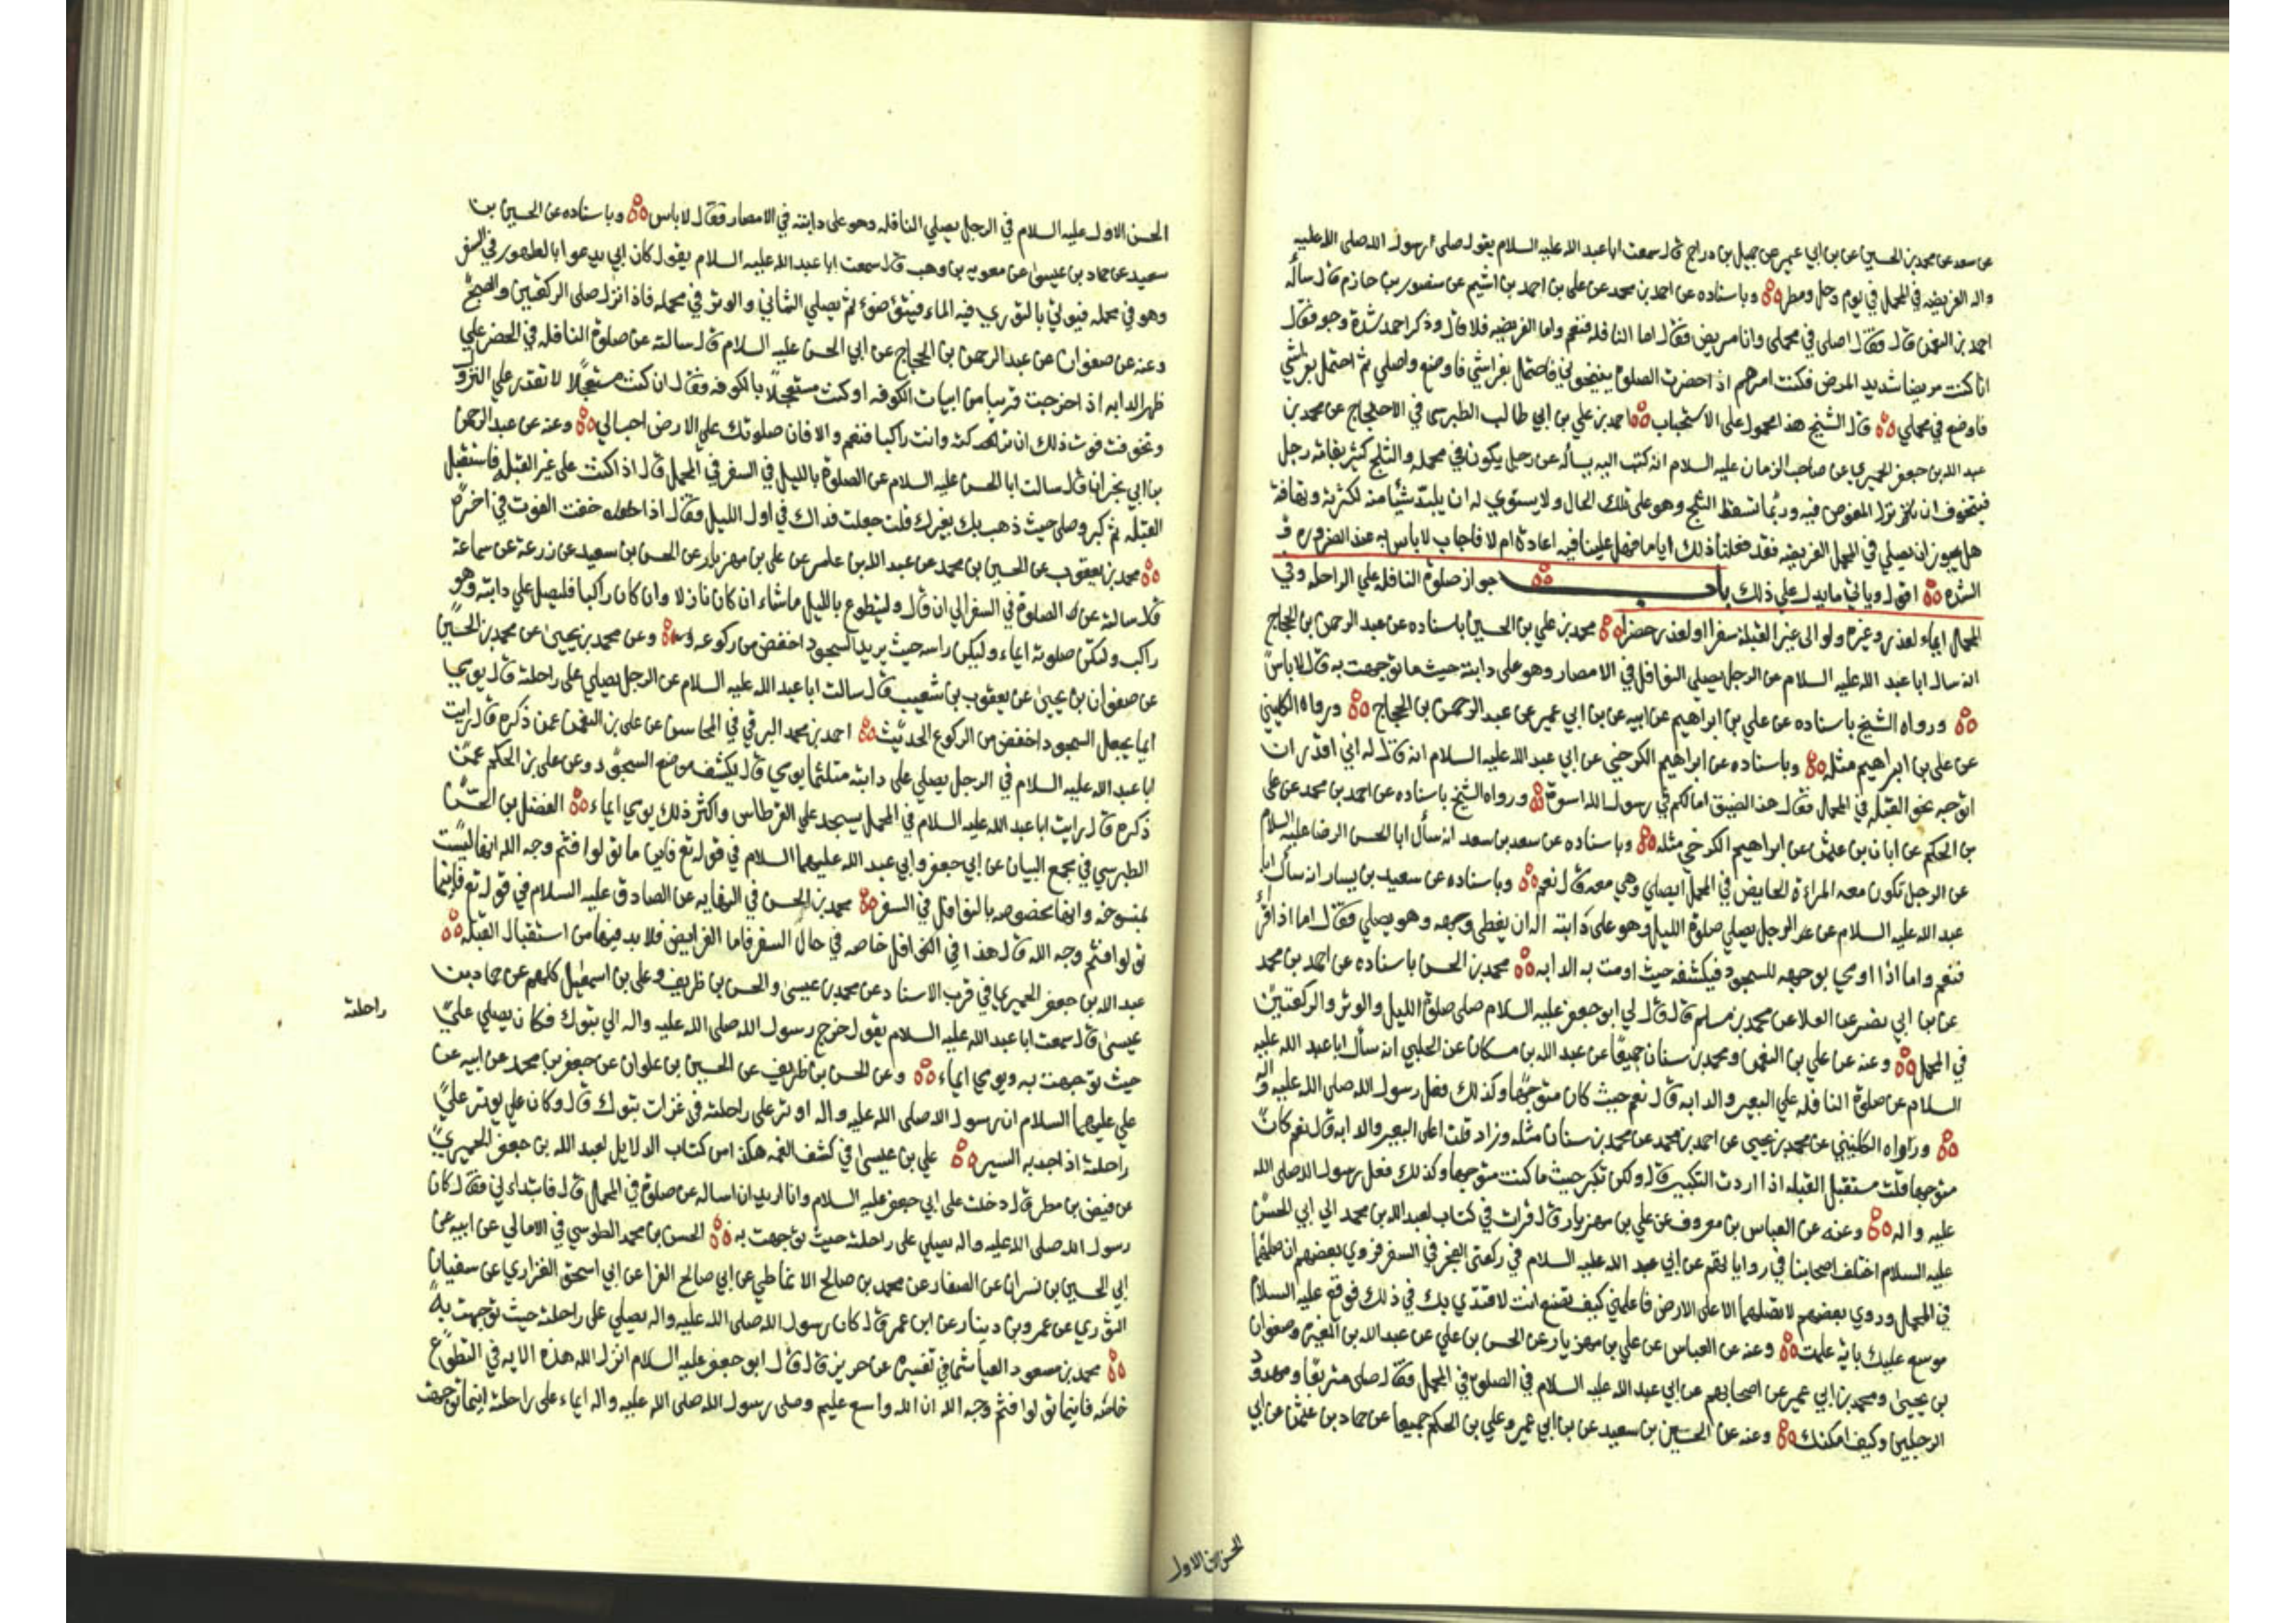 عن سعد عن محمد بن الحسين عن بن ابي عمير عن جميل بن دراج قال سمعت ابا عبد الله عليه السلام يقول صلى رسول الله صلى الله عليه
واله الفريضه في المحمل في يوم وحل ومطر وباسناده عن احمد بن محمد عن علي بن احمد بن اشيم عن منصور بن حازم قال سأله
احمد بن النعمن قال فقال اصلي في محملي وانا مريض فقال اما النافله فنعم واما الفريضه فلا قال وذكر احمد شدة وجعه فقال
انا كنت مريضا شديد المرض فكنت امرهم اذا حضرت الصلوة ينيخوني فاحتمل بفراشي فاوضع واصلي ثم احتمل بفراشي
فاوضع في محملي قال الشيخ هذا محمول على الاستحباب احمد بن علي بن ابي طالب الطبرسي في الاحتجاج عن محمد بن
عبد الله بن جعفر الحميري عن صاحب الزمان عليه السلام انه كتب اليه يسأله عن رجل يكون في محمله والثلج كثير بقامة رجل
فيتخوف ان نزل الغوص فيه وربما يسقط الثلج وهو على تلك الحال ولا يستوي له ان يلبد شيأ منه لكثرته وتهافته
هل يجوز ان يصلي في المحمل الفريضه فقد فعلنا ذلك اياما فهل علينا فيه اعادة ام لا فاجاب لا باس به عند الضروره و
الشده اقول وياتي ما يدل على ذلك باب جواز صلوة النافله علي الراحله وفي
المحمل ايماء لعذر وغيره ولو الى غير القبلة سفرا ولعذر حضرا محمد بن علي بن الحسين باسناده عن عبد الرحمن بن الحجاج
انه سال ابا عبد الله عليه السلام عن الرجل يصلي النوافل في الامصار وهو على دابته حيث ما توجهت به قال لا باس
ورواه الشيخ باسناده عن علي بن ابراهيم عن ابيه عن بن ابي عمير عن عبد الرحمن بن الحجاج ورواه الكليني
عن علي بن ابراهيم مثله وباسناده عن ابراهيم الكرخي عن ابي عبد الله عليه السلام انه قال له اني اقدر ان
اتوجه نحو القبله في المحمل فقال هذا الضيق اما لكم في رسول الله اسوة ورواه الشيخ باسناده عن احمد بن محمد عن علي
بن الحكم عن ابان بن عثمن عن ابراهيم الكرخي مثله وباسناده عن سعد بن سعد انه سأل ابا الحسن الرضا عليه السلام
عن الرجل تكون معه المراة الحايض في المحمل ايصلي وهي معه قال نعم وباسناده عن سعيد بن يسار انه سأل ابا
عبد الله عليه السلام عن الرجل يصلي صلوة الليل وهو على دابته اله ان يغطي وجهه وهو يصلي فقال اما اذا قرأ
فنعم واما اذا اومى بوجهه للسجود فليكشفه حيث اومت به الدابه محمد بن الحسن باسناده عن احمد بن محمد
عن بن ابي نصر عن العلا عن محمد بن مسلم قال قال لي ابو جعفر عليه السلام صلى صلوة الليل والوتر والركعتين
في المحمل وعنه عن علي بن النعمن ومحمد بن سنان جميعا عن عبد الله بن مسكان عن الحلبي انه سأل ابا عبد الله عليه
السلام عن صلوة النافله علي البعير والدابه قال نعم حيث كان متوجها وكذلك فعل رسول الله صلى الله عليه واله
ورواه الكليني عن محمد بن يحيى عن احمد بن محمد عن محمد بن سنان مثله وزاد قلت اعلى البعير والدابه قال نعم كان
متوجها قلت مستقبل القبله اذا اردت التكبير قال ولكن تكبر حيث ما كنت متوجها وكذلك فعل رسول الله صلى الله
عليه واله وعنه عن العباس بن معروف عن علي بن مهزيار قال قرات في كتاب لعبد الله بن محمد الى ابي الحسن
عليه السلام اختلف اصحابنا في رواياتهم عن ابي عبد الله عليه السلام في ركعتي الفجر في السفر فروي بعضهم ان صلهما
في المحمل وروي بعضهم لا تصلهما الا على الارض فاعلمني كيف تصنع انت لاقتدي بك في ذلك فوقع عليه السلام
موسع عليك باية عملت وعنه عن العباس عن علي بن مهزيار عن الحسن بن علي عن عبد الله بن المغيره وصفوان
بن يحيى ومحمد بن ابي عمير عن اصحابهم عن ابي عبد الله عليه السلام في الصلوة في المحمل فقال صلى متربعا وممدود
الرجلين وكيف امكنك وعنه عن الحسين بن سعيد عن بن ابي عمير وعلي بن الحكم جميعا عن حماد بن عثمن عن ابي
الحسن الاول
الحسن الاول عليه السلام في الرجل يصلي النافله وهو على دابته في الامصار فقال لا باس وباسناده عن الحسين بن
سعيد عن حماد بن عيسى عن معويه بن وهب قال سمعت ابا عبد الله عليه السلام يقول كان ابي يدعوا بالطهور في السفر
وهو في محمله فيوتي بالتور فيه الماء فيتوضوء ثم يصلي الثماني والوتر في محمله فاذا نزل صلى الركعتين والصبح
وعنه عن صفوان عن عبد الرحمن بن الحجاج عن ابي الحسن عليه السلام قال سالته عن صلوة النافله في الحضر علي
ظهر الدابه اذا خرجت قريبا من ابيات الكوفه او كنت مستعجلا بالكوفه فقال ان كنت مستعجلا لا تقدر علي النزول
وتخوفت فوت ذلك ان تركته وانت راكبا فنعم والا فان صلوتك علي الارض احب الي وعنه عن عبد الرحمن
بن ابي نجران قال سالت ابا الحسن عليه السلام عن الصلوة بالليل في السفر في المحمل قال اذا كنت على غير القبله فاستقبل
القبله ثم كبر وصلى حيث ذهب بك بعيرك قلت جعلت فداك في اول الليل فقال اذا خفت الفوت في اخره
محمد بن يعقوب عن الحسين بن محمد عن عبد الله بن عامر عن علي بن مهزيار عن الحسن بن سعيد عن زرعة عن سماعة
قال سالته عن الصلوة في السفر الى ان قال وليتطوع بالليل ماشاء ان كان نازلا وان كان راكبا فليصل علي دابته وهو
راكب ولتكن صلوته ايماء وليكن راسه حيث يريد السجود اخفض من ركوعه وعن محمد بن يحيى عن محمد بن الحسين
عن صفوان بن يحيى عن يعقوب بن شعيب قال سالت ابا عبد الله عليه السلام عن الرجل يصلي على راحلته قال يومي
ايما يجعل السجود اخفض من الركوع الحديث احمد بن محمد البرقي في المحاسن عن علي بن النعمن عمن ذكره قال رايت
ابا عبد الله عليه السلام في الرجل يصلي على دابته متلثما يومي قال يكشف موضع السجود وعن علي بن الحكم عمن
ذكره قال رايت ابا عبد الله عليه السلام في المحمل يسجد علي القرطاس واكثر ذلك يومي ايماء الفضل بن الحسن
الطبرسي في مجمع البيان عن ابي جعفر وابي عبد الله عليهما السلام في قوله تع فاينما تولوا فثم وجه الله انها ليست
بمنسوخه وانها مخصوصه بالنوافل في السفر محمد بن الحسن في النهايه عن الصادق عليه السلام في قوله تع فاينما
تولوا فثم وجه الله قال هذا في النوافل خاصه في حال السفر فاما الفرايض فلا بد فيها من استقبال القبله
عبد الله بن جعفر الحميري في قرب الاسناد عن محمد بن عيسى والحسن بن ظريف وعلي بن اسمعيل كلهم عن حماد بن
عيسى قال سمعت ابا عبد الله عليه السلام يقول خرج رسول الله صلى الله عليه واله الى تبوك فكان يصلي علي
راحلته
حيث توجهت به ويومي ايماء وعن الحسن بن ظريف عن الحسين بن علوان عن جعفر بن محمد عن ابيه عن
علي عليهما السلام ان رسول الله صلى الله عليه واله اوتر على راحلته في غزات تبوك قال وكان علي يوتر علي
راحلته اذا جد به السير علي بن عيسى في كشف الغمه هكذا من كتاب الدلايل لعبد الله بن جعفر الحميري
عن فيض بن مطر قال دخلت على ابي جعفر عليه السلام وانا اريد ان اساله عن صلوة في المحمل قال فابتداءني فقال كان
رسول الله صلى الله عليه واله يصلي على راحلته حيث توجهت به الحسن بن محمد الطوسي في الامالي عن ابيه عن
ابي الحسين بن نسران عن الصفار عن محمد بن صالح الانماطي عن ابي صالح الفزا عن ابي اسحق الفزاري عن سفيان
الثوري عن عمرو بن دينار عن ابن عمر قال كان رسول الله صلى الله عليه واله يصلي على راحلته حيث توجهت به
محمد بن مسعود العياشي في تفسيره عن حريز قال قال ابو جعفر عليه السلام انزل الله هذه الايه في التطوع
خاصه فاينما تولوا فثم وجه الله ان الله واسع عليم وصلى رسول الله صلى الله عليه واله ايماء على راحلته اينما توجهت